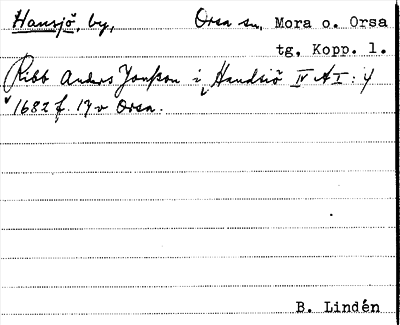 Hansjö, by, Orsa sn, Mora o. Orsa
tg, Kopp. l.
Ribb Anders Jonsson i Handsiö IV A I: 4
1682 f. 17v Orsa.
B. Lindén